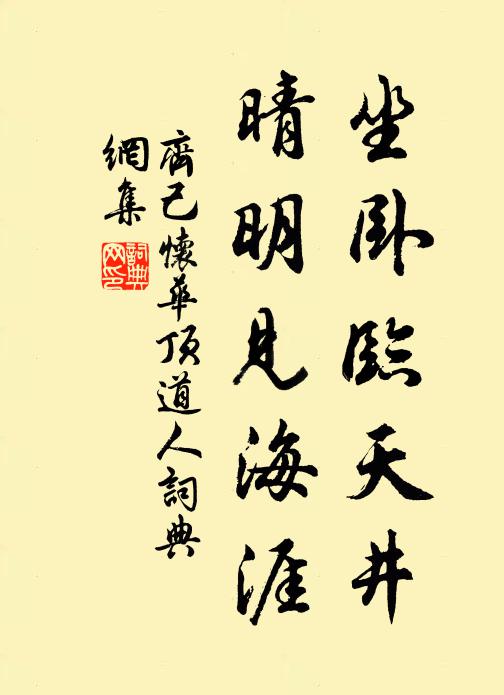 坐卧臨天井
晴明見海涯
齊己懷華頂道人詞典
網集
詞典
网印